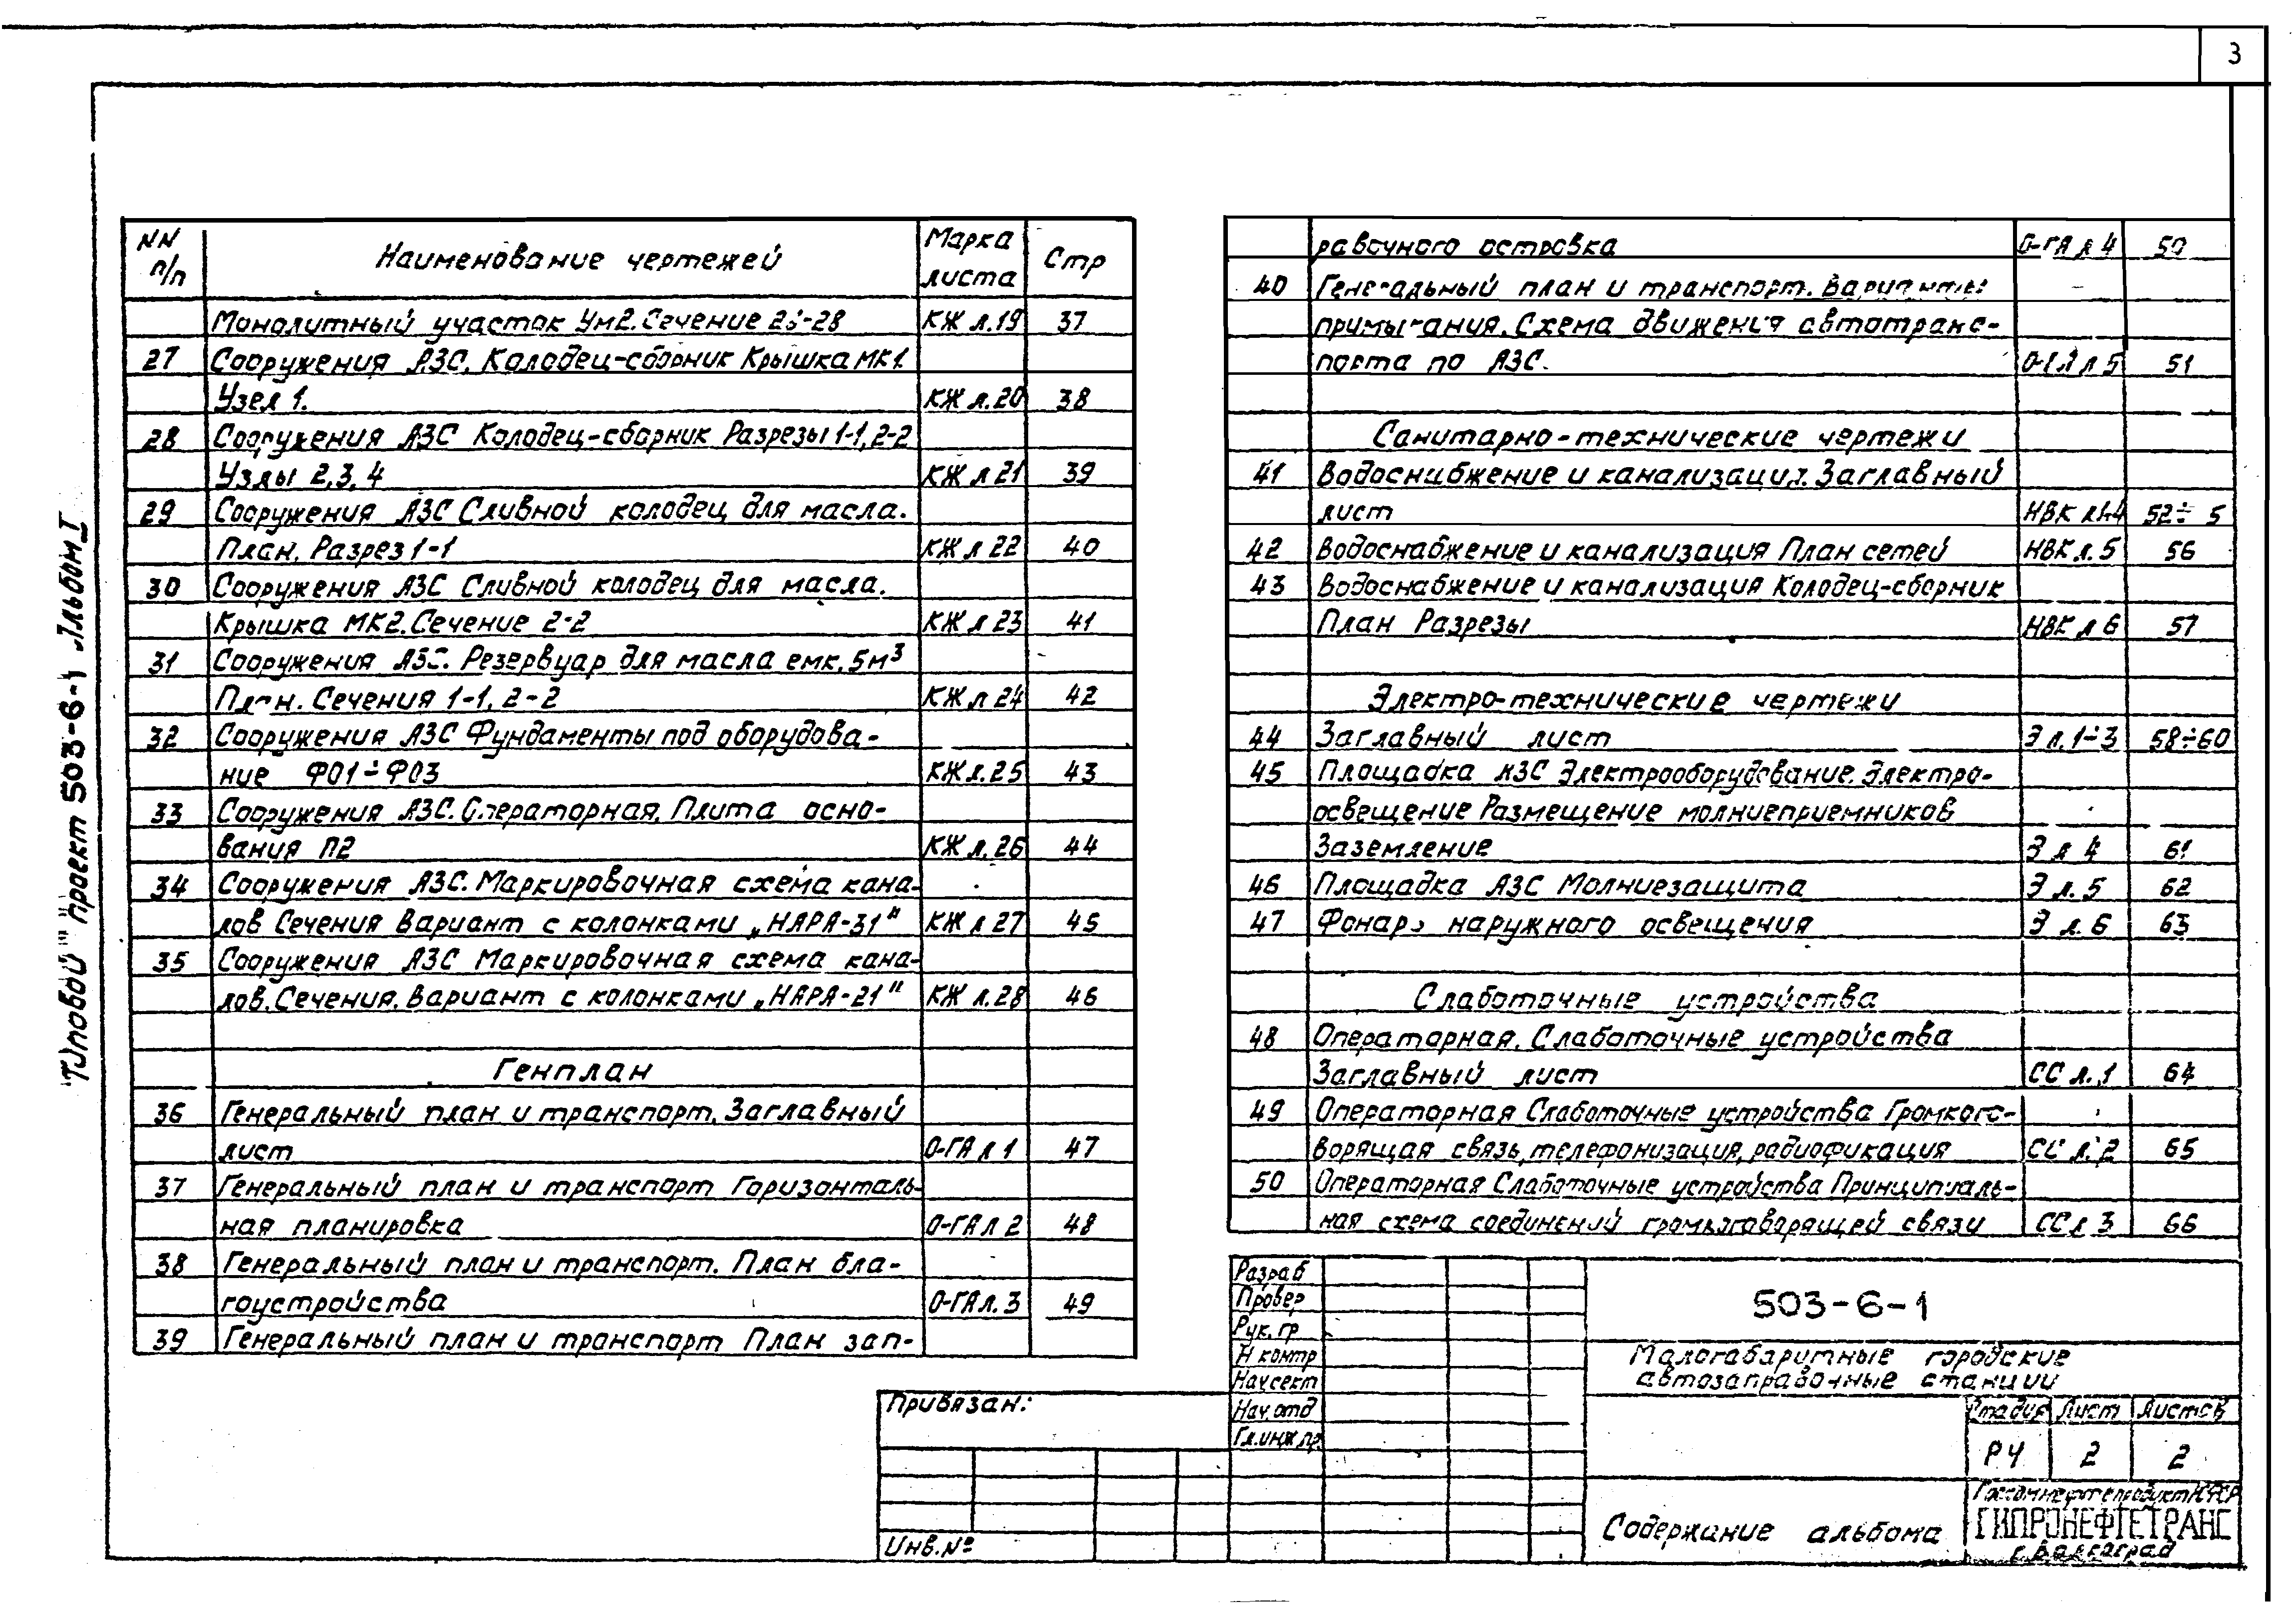 3
Типовой проект 503-6-1 Альбом I
NN п/п Наименование чертежей Марка листа Стр
Монолитный участок Ум2. Сечение -28 КЖ л.19 37
27 Сооружения АЗС. Колодец-сборник Крышка МК1.
Узел 1. КЖ л.20 38
28 Сооружения АЗС Колодец-сборник Разрезы 1-1, 2-2
Узлы 2, 3, 4 КЖ л 21 39
29 Сооружения АЗС Сливной колодец для масла.
План. Разрез 1-1 КЖ л 22 40
30 Сооружения АЗС Сливной колодец для масла.
Крышка МК2. Сечение 2-2 КЖ л 23 41
31 Сооружения АЗС. Резервуар для масла емк. 5м³
План. Сечения 1-1, 2-2 КЖ л 24 42
32 Сооружения АЗС Фундаменты под оборудова-
ние ФО1÷ФО3 КЖ л.25 43
33 Сооружения АЗС. Операторная. Плита осно-
вания П2 КЖ л.26 44
34 Сооружения АЗС. Маркировочная схема кана-
лов Сечения Вариант с колонками „НАРА-31" КЖ л 27 45
35 Сооружения АЗС Маркировочная схема кана-
лов. Сечения. Вариант с колонками „НАРА-21" КЖ л.28 46
Генплан
36 Генеральный план и транспорт. Заглавный
лист О-ГА л 1 47
37 Генеральный план и транспорт Горизонталь-
ная планировка О-ГА л 2 48
38 Генеральный план и транспорт. План бла-
гоустройства О-ГА л. 3 49
39 Генеральный план и транспорт План зап-
равочного островка О-ГА л 4 50
40 Генеральный план и транспорт. Варианты
примыкания. Схема движения автотранс-
порта по АЗС. О-ГА л 5 51
Санитарно-технические чертежи
41 Водоснабжение и канализация. Заглавный
лист НВК л1-4 52÷ 5
42 Водоснабжение и канализация План сетей НВК л. 5 56
43 Водоснабжение и канализация Колодец-сборник
План Разрезы НВК л 6 57
Электро-технические чертежи
44 Заглавный лист Э л. 1÷3 58÷60
45 Площадка АЗС Электрооборудование. Электро-
освещение Размещение молниеприемников
Заземление Э л 4 61
46 Площадка АЗС Молниезащита Э л. 5 62
47 Фонарь наружного освещения Э л. 6 63
Слаботочные устройства
48 Операторная. Слаботочные устройства
Заглавный лист СС л. 1 64
49 Операторная Слаботочные устройства Громкого-
ворящая связь, телефонизация, радиофикация СС л. 2 65
50 Операторная Слаботочные устройства Принципиаль-
ная схема соединений громкоговорящей связи СС л 3 66
Разраб
Провер
Рук. гр
Н контр
Нач сект
Нач. отд
Гл. инж пр.
503-6-1
Малогабаритные городские
автозаправочные станции
Стадия Лист Листов
РЧ 2 2
Содержание альбома
Госкомнефтепродукт РСФСР
ГИПРОНЕФТЕТРАНС
г. Волгоград
Привязан:
Инв. №